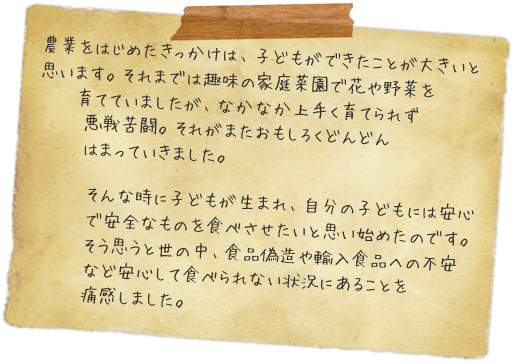 農業をはじめたきっかけは、子どもができたことが大きいと
思います。それまでは趣味の家庭菜園で花や野菜を
育てていましたが、なかなか上手く育てられず
悪戦苦闘。それがまたおもしろくどんどん
はまっていきました。
そんな時に子どもが生まれ、自分の子どもには安心
で安全なものを食べさせたいと思い始めたのです。
そう思うと世の中、食品偽造や輸入食品への不安
など安心して食べられない状況にあることを
痛感しました。